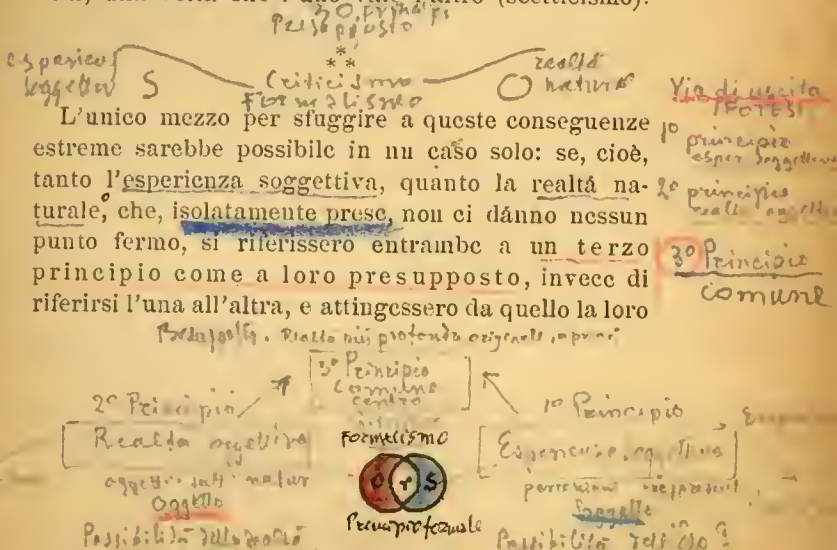 l'altro (scetticismo).
3º principi
Presupposto
**
*
esperienz
soggettiv S
Criticismo
Formalismo
realtà
O natura
L'unico mezzo per sfuggire a queste conseguenze
estreme sarebbe possibile in un caso solo: se, cioè,
tanto l'esperienza soggettiva, quanto la realtá na-
turale, che, isolatamente prese, non ci dánno nessun
punto fermo, si riferissero entrambe a un terzo
principio come a loro presupposto, invece di
riferirsi l'una all'altra, e attingessero da quello la loro
Via di uscita
IPOTESI
1º principio
esper soggettiva
2º principio
realtà oggettiva
3º Principio
comune
Presupposto. Realtà più profonda originale
3º Principio
comune
centro
2º Principio
Realtà oggettiva
natur
Oggetto
Possibilità della realtà
Formalismo
O r S
Principio formale
1º Principio
Esperienza soggettiva
percezioni
Soggetto
Possibilità dell'Io?